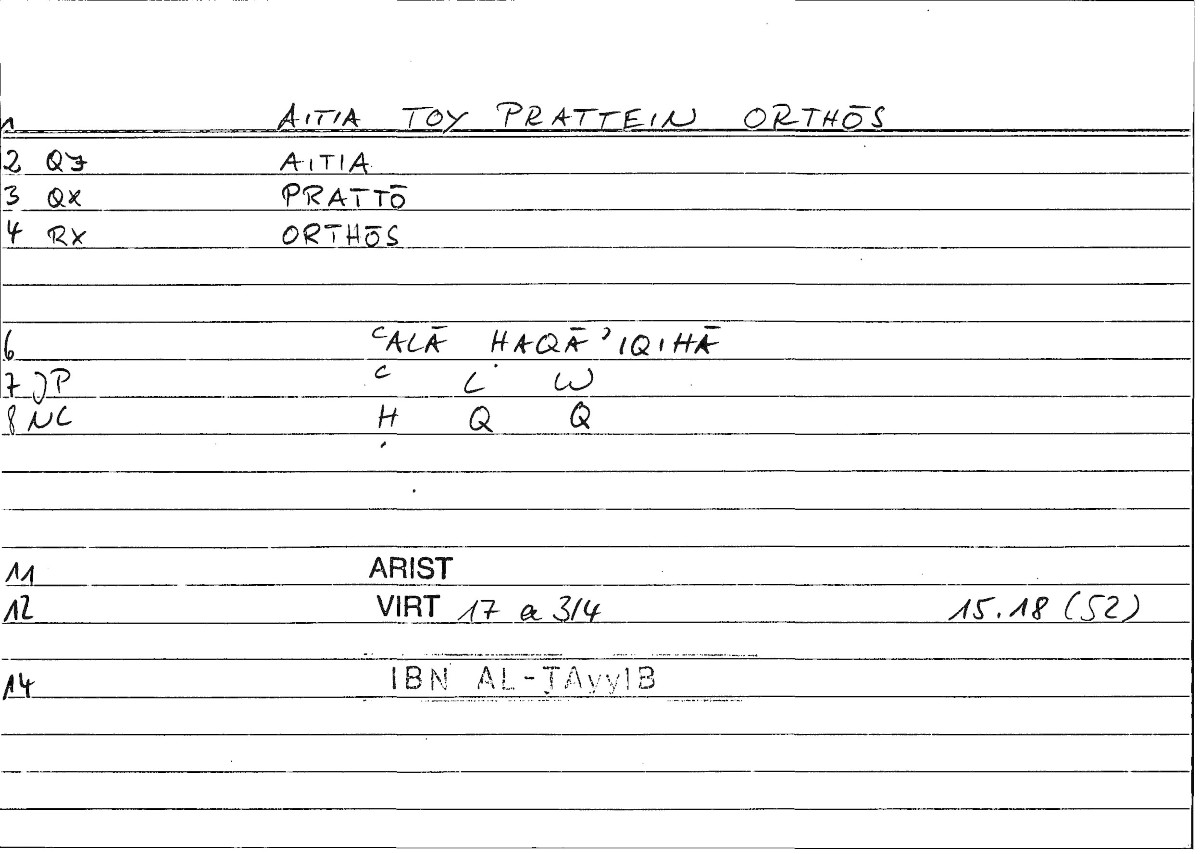 1 AITIA TOY PRATTEIN ORTHŌS
2 QZ AITIA
3 QX PRATTŌ
4 RX ORTHŌS
6 ʿALĀ ḤAQĀʾIQIHĀ
7 JP ʿ L W
8 NC Ḥ Q Q
11 ARIST
12 VIRT 17 a 3/4 15.18 (52)
14 IBN AL-ṬAyyIB